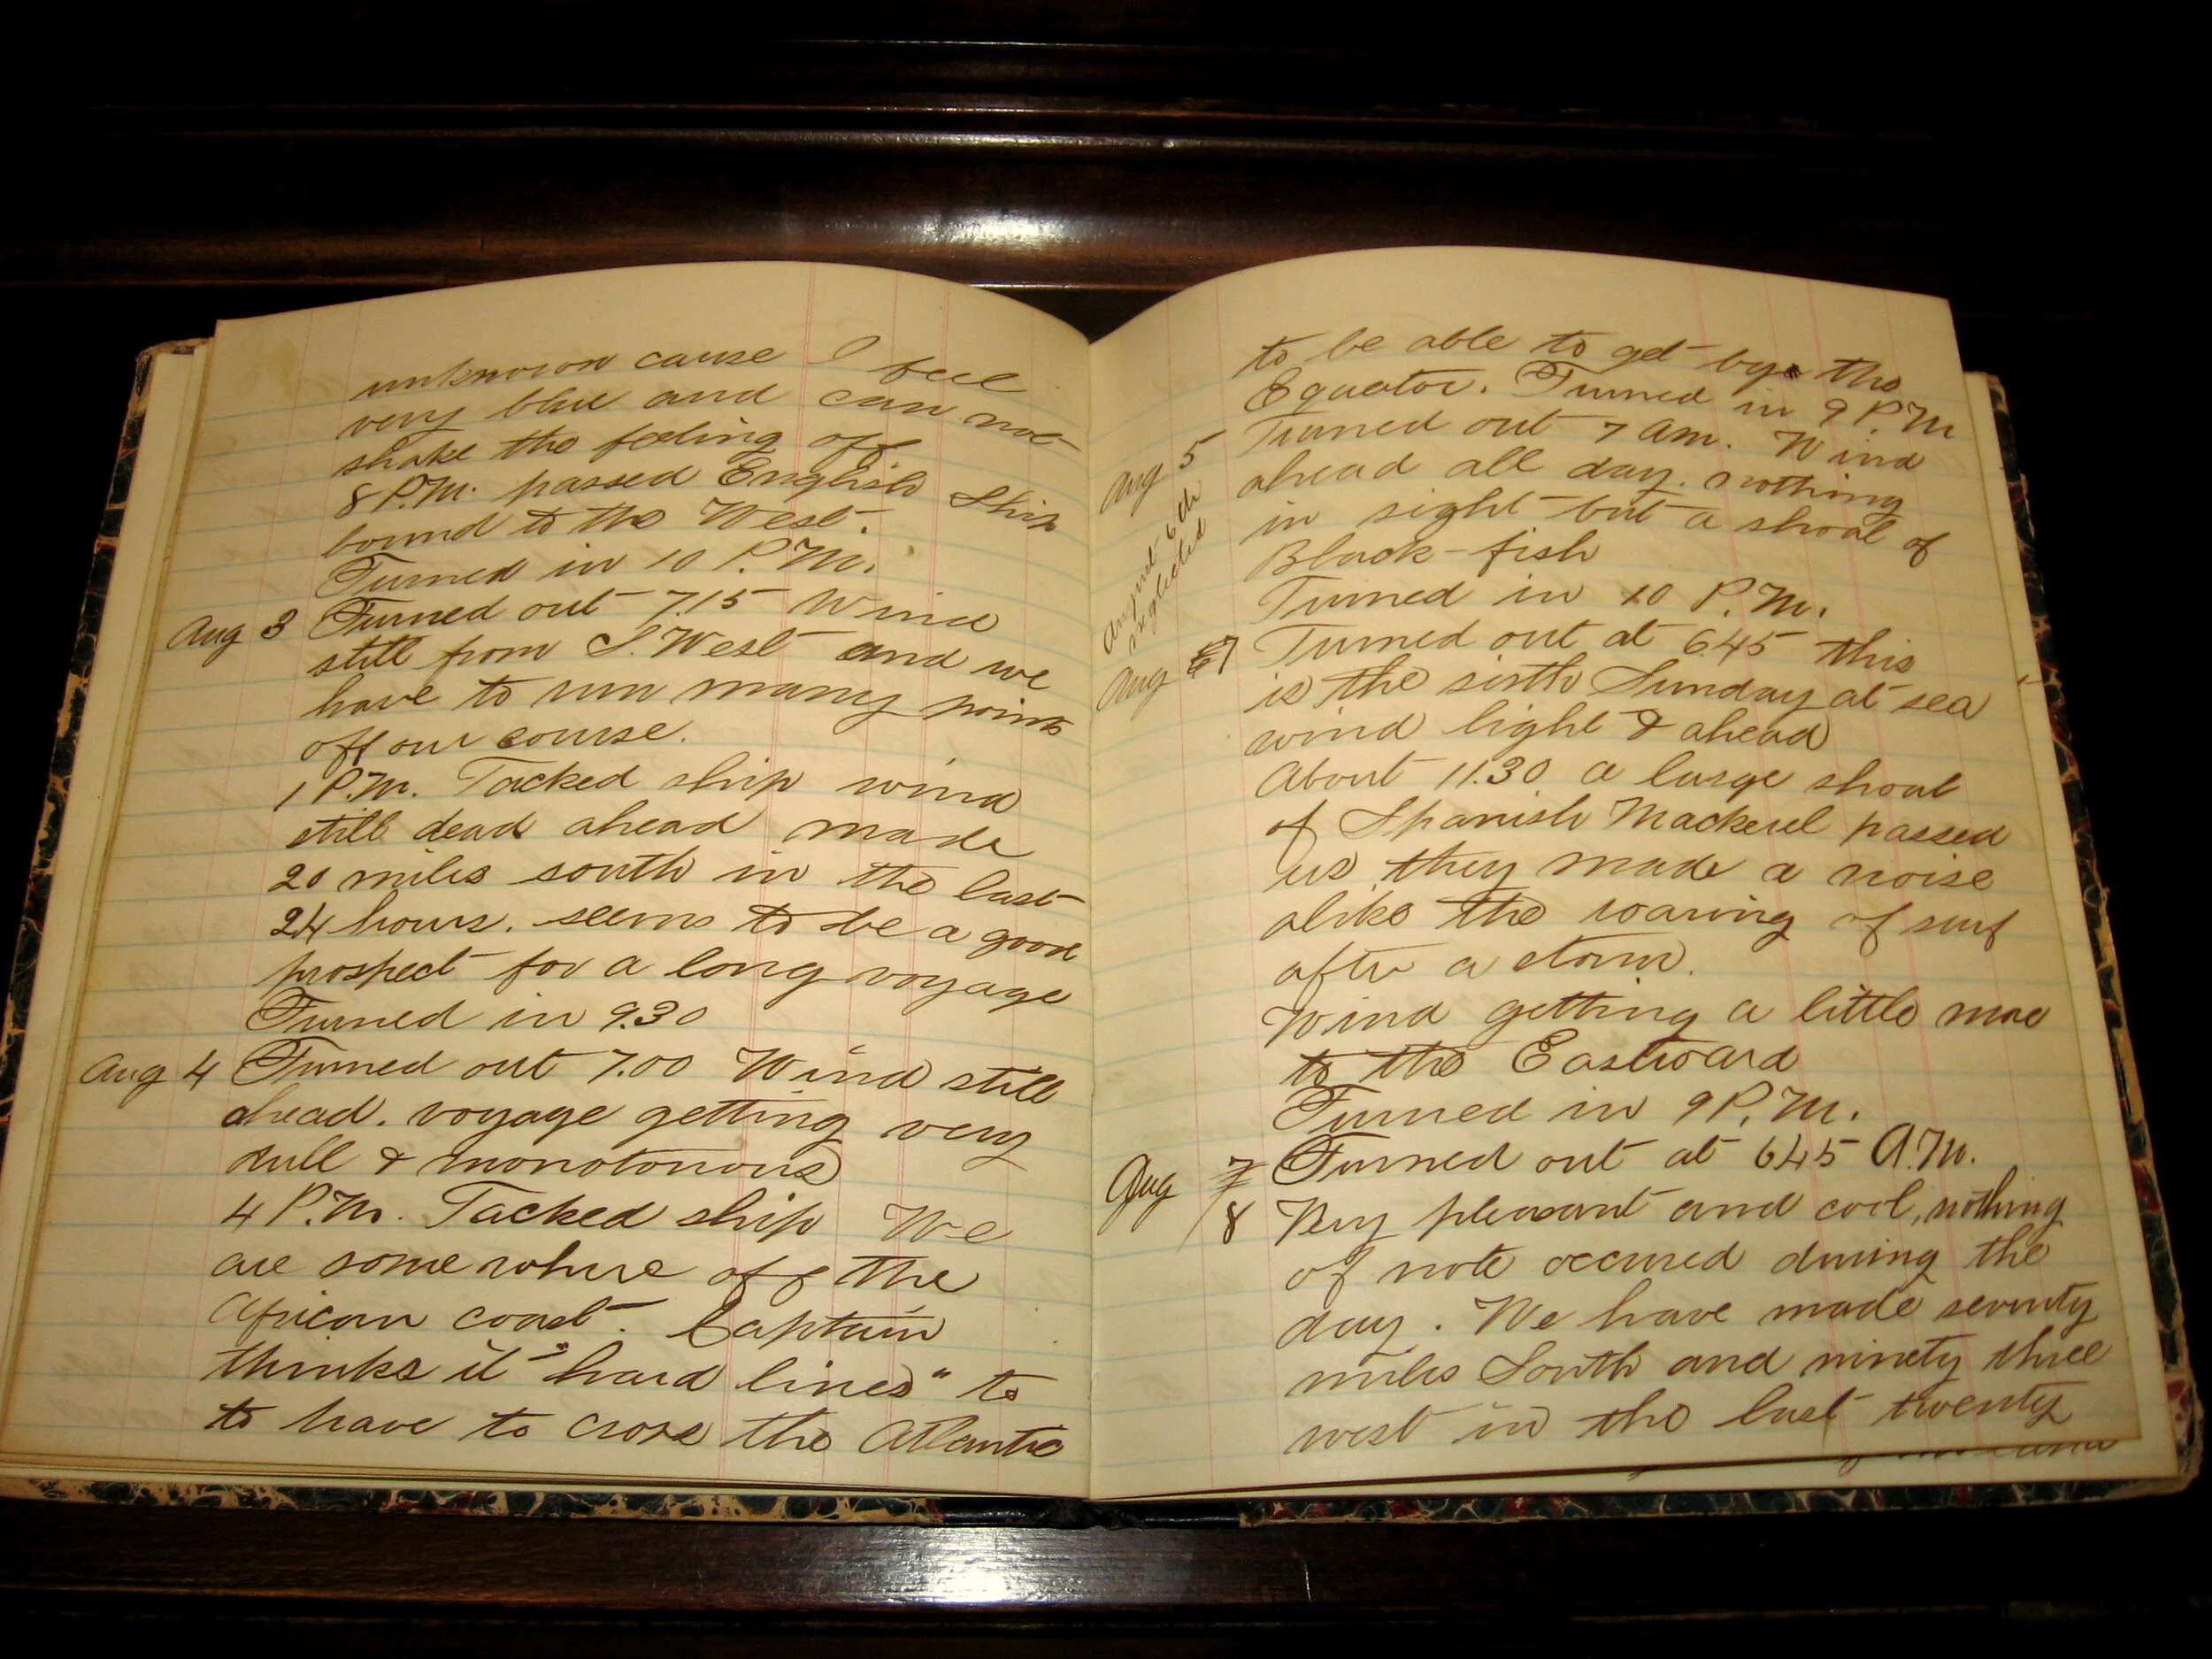 unknown cause I feel
very blue and can not
shake the feeling off
8 P.M. passed English Ship
bound to the West.
Turned in 10 P.M.
Aug 3 Turned out 7.15 Wind
still from S. West and we
have to run many points
off our course.
1 P.M. Tacked ship wind
still dead ahead made
20 miles south in the last
24 hours. seems to be a good
prospect for a long voyage
Turned in 9.30
Aug 4 Turned out 7.00 Wind still
ahead. voyage getting very
dull & monotonous
4 P.M. Tacked ship We
are some where off the
African coast. Captain
thinks it "hard lines" to
to have to cross the Atlantic
to be able to get by the
Equator. Turned in 9 P.M
Aug 5 Turned out 7 am. Wind
ahead all day. nothing
in sight but a shoal of
Black-fish
Turned in 10 P.M.
August 6th
neglected
Aug 7 Turned out at 6.45 this
is the sixth Sunday at sea
wind light & ahead
About 11.30 a large shoal
of Spanish Mackerel passed
us they made a noise
alike the roaring of surf
after a storm.
Wind getting a little more
to the Eastward
Turned in 9 P.M.
Aug 7 Turned out at 6.45 A.M.
8 Very pleasant and cool, nothing
of note occured during the
day. We have made seventy
miles South and ninety three
west in the last twenty